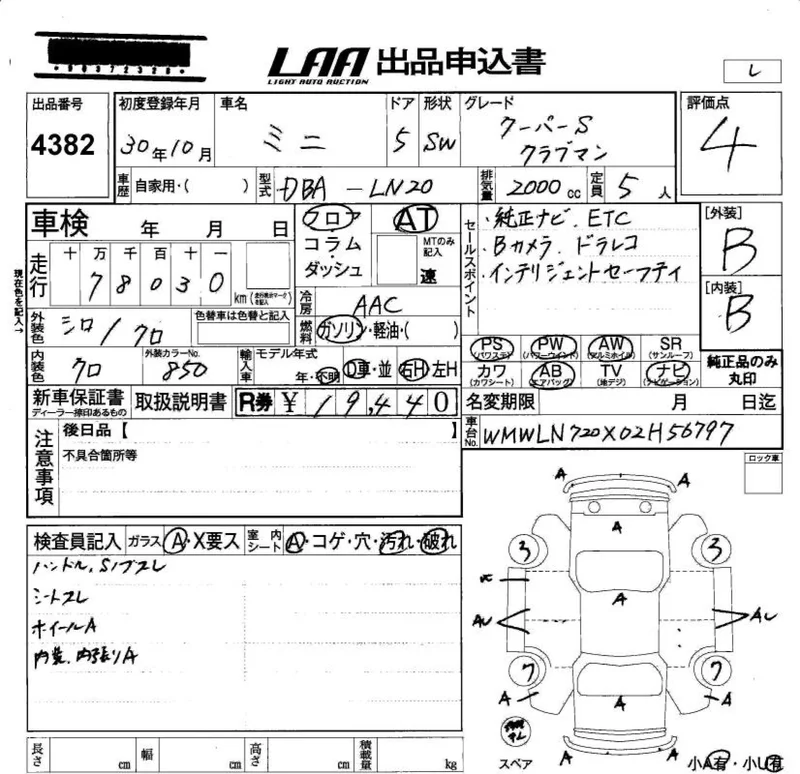 LAA 出品申込書
LIGHT AUTO AUCTION
L
出品番号
4382
初度登録年月
30年10月
車名
ミニ
ドア
5
形状
SW
グレード
クーパーS
クラブマン
評価点
4
車歴 自家用・( )
型式 DBA-LN20
排気量 2000cc
定員 5人
車検 年 月 日
フロア
コラム・
ダッシュ
AT
MTのみ記入
速
セールスポイント
・純正ナビ、ETC
・Bカメラ、ドラレコ
・インテリジェントセーフティ
[外装]
B
[内装]
B
現在色を記入→
走行
十 万 千 百 十 一
7 8 0 3 0 km
冷房 AAC
燃料 ガソリン・軽油・( )
外装色 シロ/クロ
色替車は色替と記入
内装色 クロ
外装カラーNo.
850
輸入車 モデル年式
年・不明
D車・並
右H・左H
PS (パワステ) PW (パワーウインド) AW (アルミホイル) SR (サンルーフ)
カワ (カワシート) AB (エアバッグ) TV (地デジ) ナビ (ナビゲーション)
純正品のみ丸印
新車保証書
ディーラー捺印あるもの
取扱説明書
R券 ¥ 19,440
名変期限 月 日迄
車台No. WMWLN720X02H56797
注意事項
後日品【 】
不具合箇所等
ロック車
検査員記入
ガラス A・X要ス
室内シート A・コゲ・穴・汚れ・破れ
ハンドル、Sノブスレ
シートスレ
ホイールA
内装、内張りA
A A
A
3 3
A
AU AL
7 7
A A A
A A
スペア
小A有・小U有
長さ cm 幅 cm 高さ cm 積載量 kg